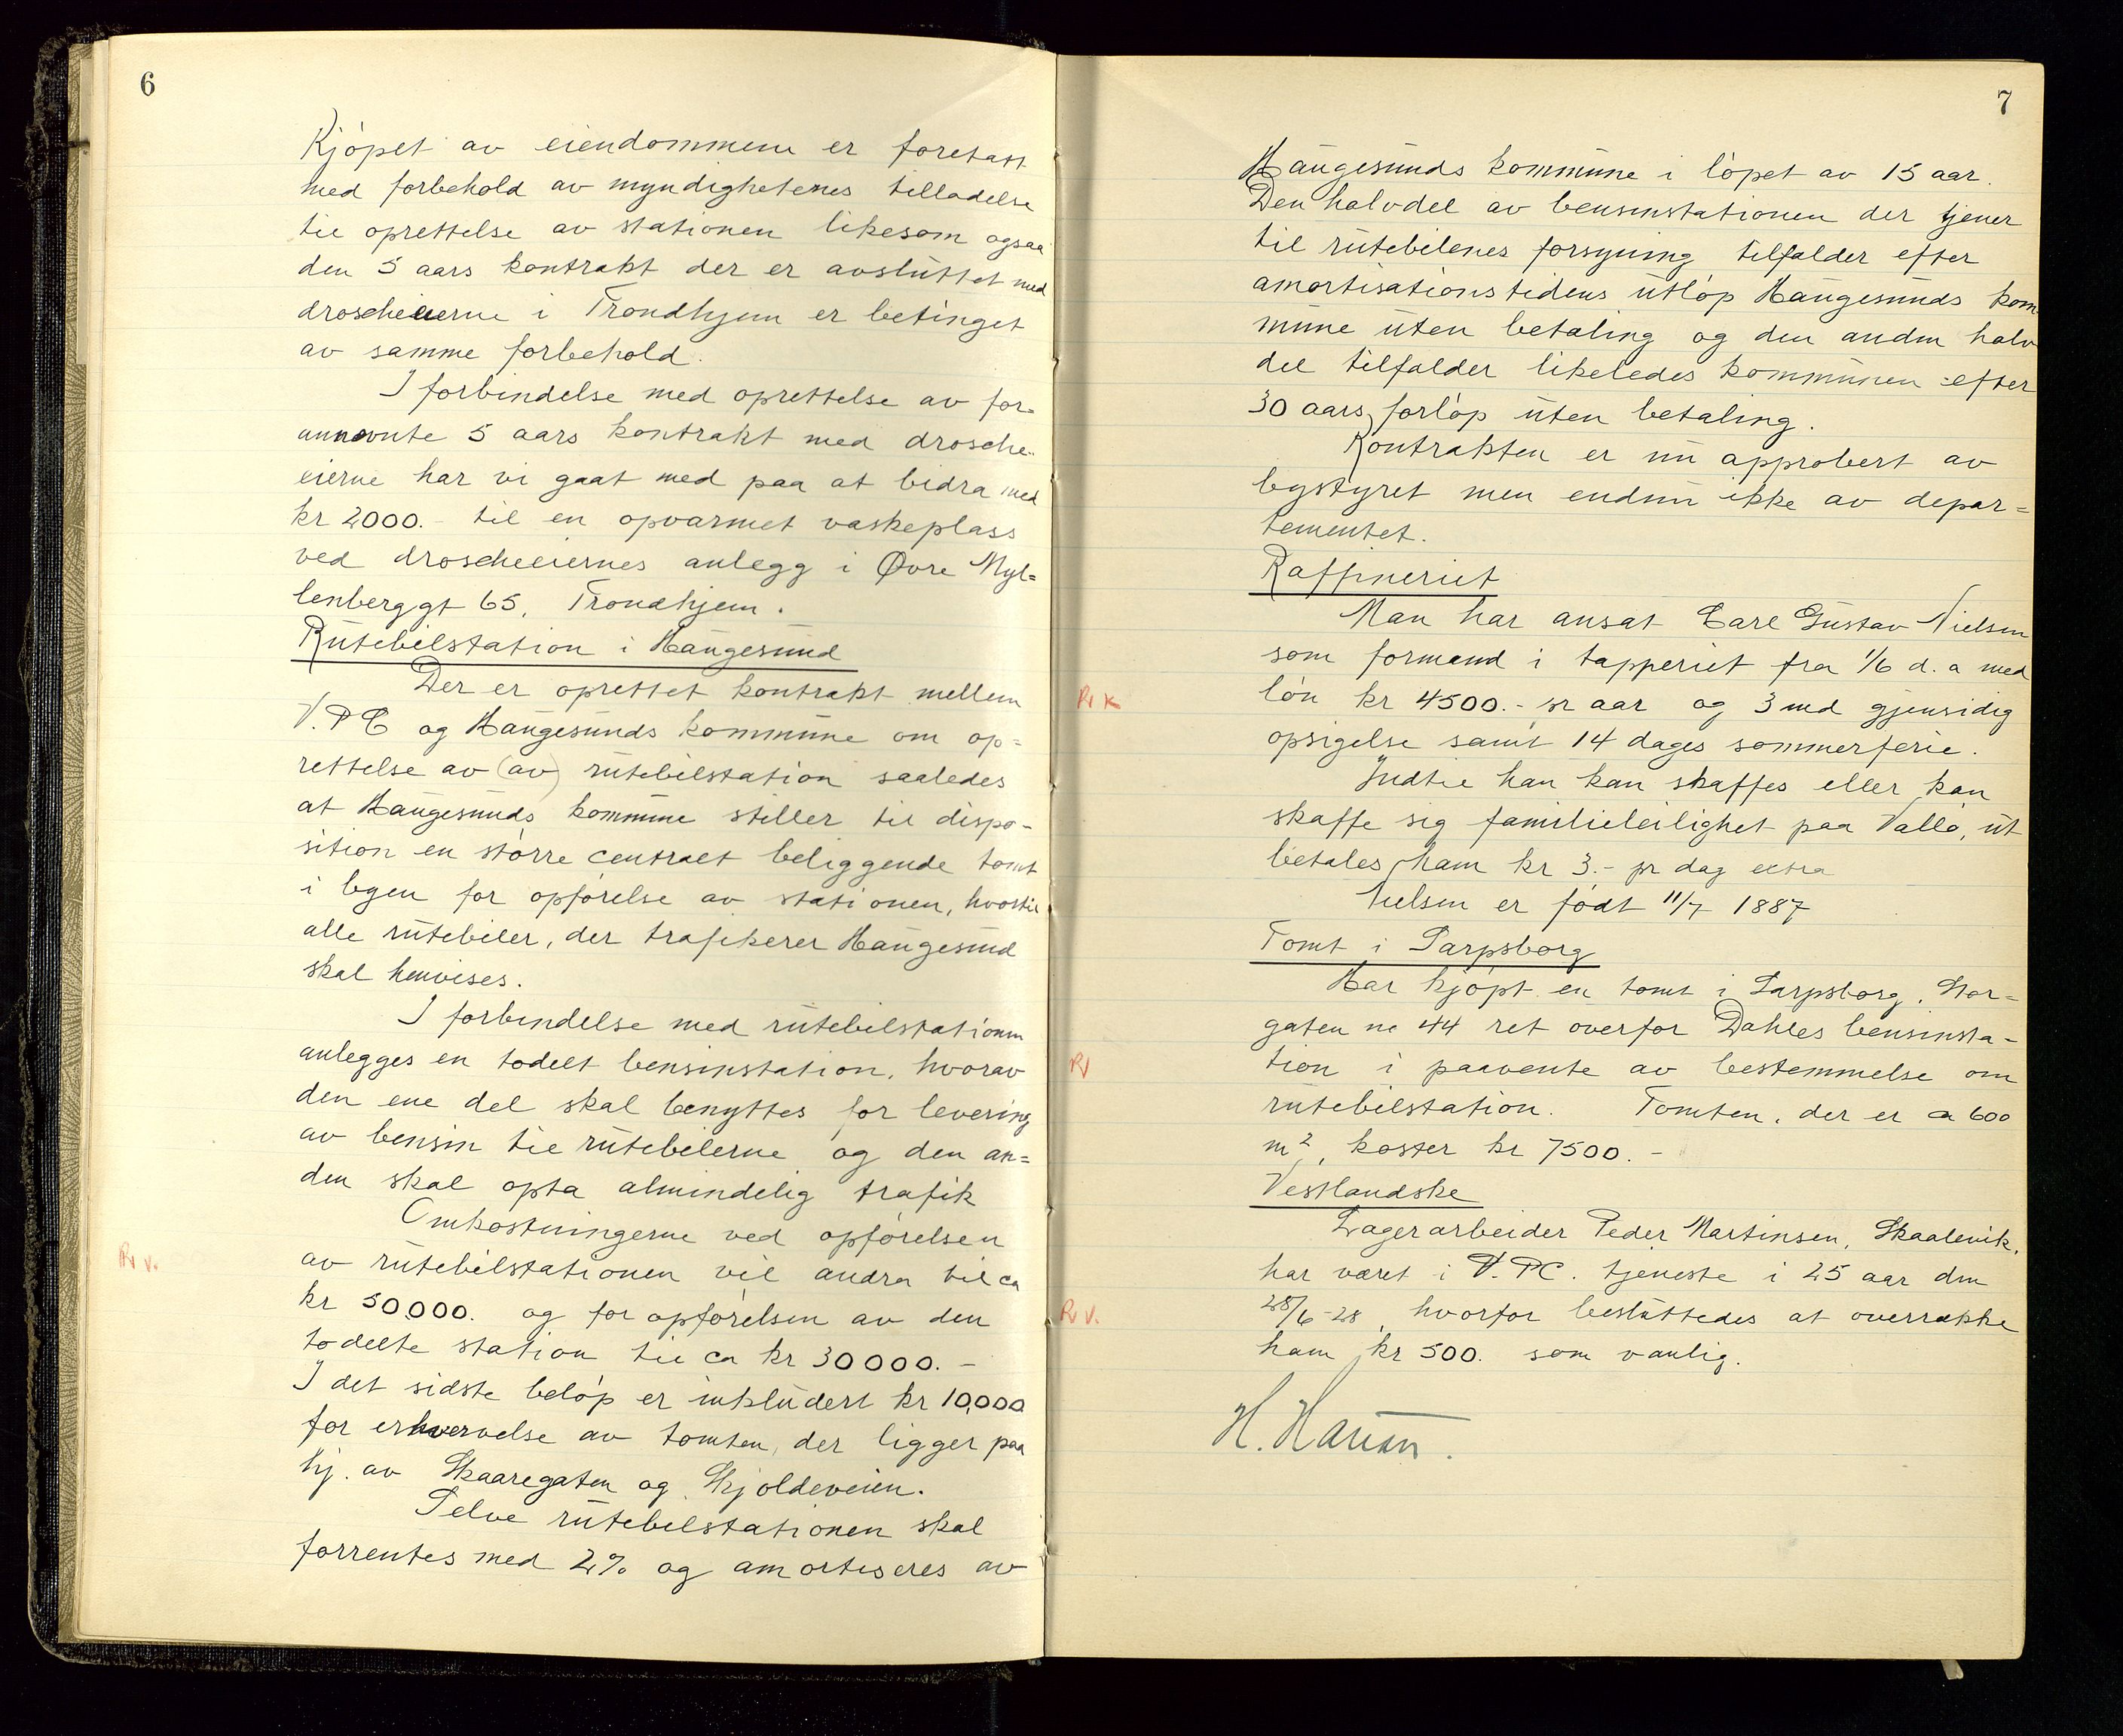 6
Kjöpet av eiendommene er foretatt
med forbehold av myndighetenes tilladelse
til oprettelse av stationen likesom ogsaa
den 5 aars kontrakt der er avsluttet med
droscheeierne i Trondhjem er betinget
av samme forbehold.
I forbindelse med oprettelse av for-
annævnte 5 aars kontrakt med drosche-
eierne har vi gaat med paa at bidra med
kr 2000.- til en opvarmet vaskeplass
ved droscheeiernes anlegg i Øvre Myl=
lenberggt 65, Trondhjem.
Rutebilstation i Haugesund
Der er oprettet kontrakt mellem
V.P.C og Haugesunds kommune om op=
rettelse av (av) rutebilstation saaledes
at Haugesunds kommune stiller til dispo-
sition en större centralt beliggende tomt
i byen for opförelse av stationen, hvortil
alle rutebiler, der trafikerer Haugesund
skal henvises.
I forbindelse med rutebilstationen
anlegges en todelt bensinstation, hvorav
den ene del skal benyttes for levering
av bensin til rutebilerne og den an=
den skal opta almindelig trafik
Omkostningerne ved opförelsen
av rutebilstationen vil andra til ca
kr 50.000. og for opförelsen av den
todelte station til ca kr 30000.-
I det sidste belöp er inkludert kr 10.000
for erhvervelse av tomten, der ligger paa
hj. av Skaaregaten og Skjoldeveien.
Selve rutebilstationen skal
forrentes med 2% og amortiseres av
R v.
7
Haugesunds kommune i löpet av 15 aar.
Den halvdel av bensinstationen der tjener
til rutebilenes forsyning tilfalder efter
amortisationstidens utlöp Haugesunds kom-
mune uten betaling og den anden halv
del tilfalder likeledes kommunen efter
30 aars forlöp uten betaling.
Kontrakten er nu approbert av
bystyret men endnu ikke av depar=
tementet.
Raffineriet
Man har ansat Carl Gustav Nielsen
som formand i tapperiet fra 1/6 d.a med
R K
lön kr 4500.- pr aar og 3 md gjensidig
opsigelse samt 14 dages sommerferie.
Indtil han kan skaffes eller kan
skaffe sig familieleilighet paa Vallö, ut
betales ham kr 3.- pr dag extra
Nielsen er født 11/7 1887
Tomt i Sarpsborg
Har kjöpt en tomt i Sarpsborg, Stor=
gaten no 44 ret overfor Dahles bensinsta-
R
tion i paavente av bestemmelse om
rutebilstation. Tomten, der er ca 600
m2, koster kr 7500.-
Vestlandske
Lagerarbeider Peder Martinsen, Skaalevik,
har været i V.P.C. tjeneste i 25 aar den
R v.
28/6-28, hvorfor besluttedes at overrække
ham kr 500. som vanlig.